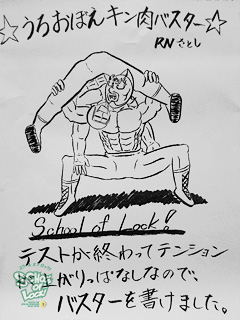 ☆うろおぼえキン肉バスター☆
RNさとし
School of Lock!
テストが終わってテンション
がりっぱなしなので
バスターを書けました。
SCHOOL OF LOCK!